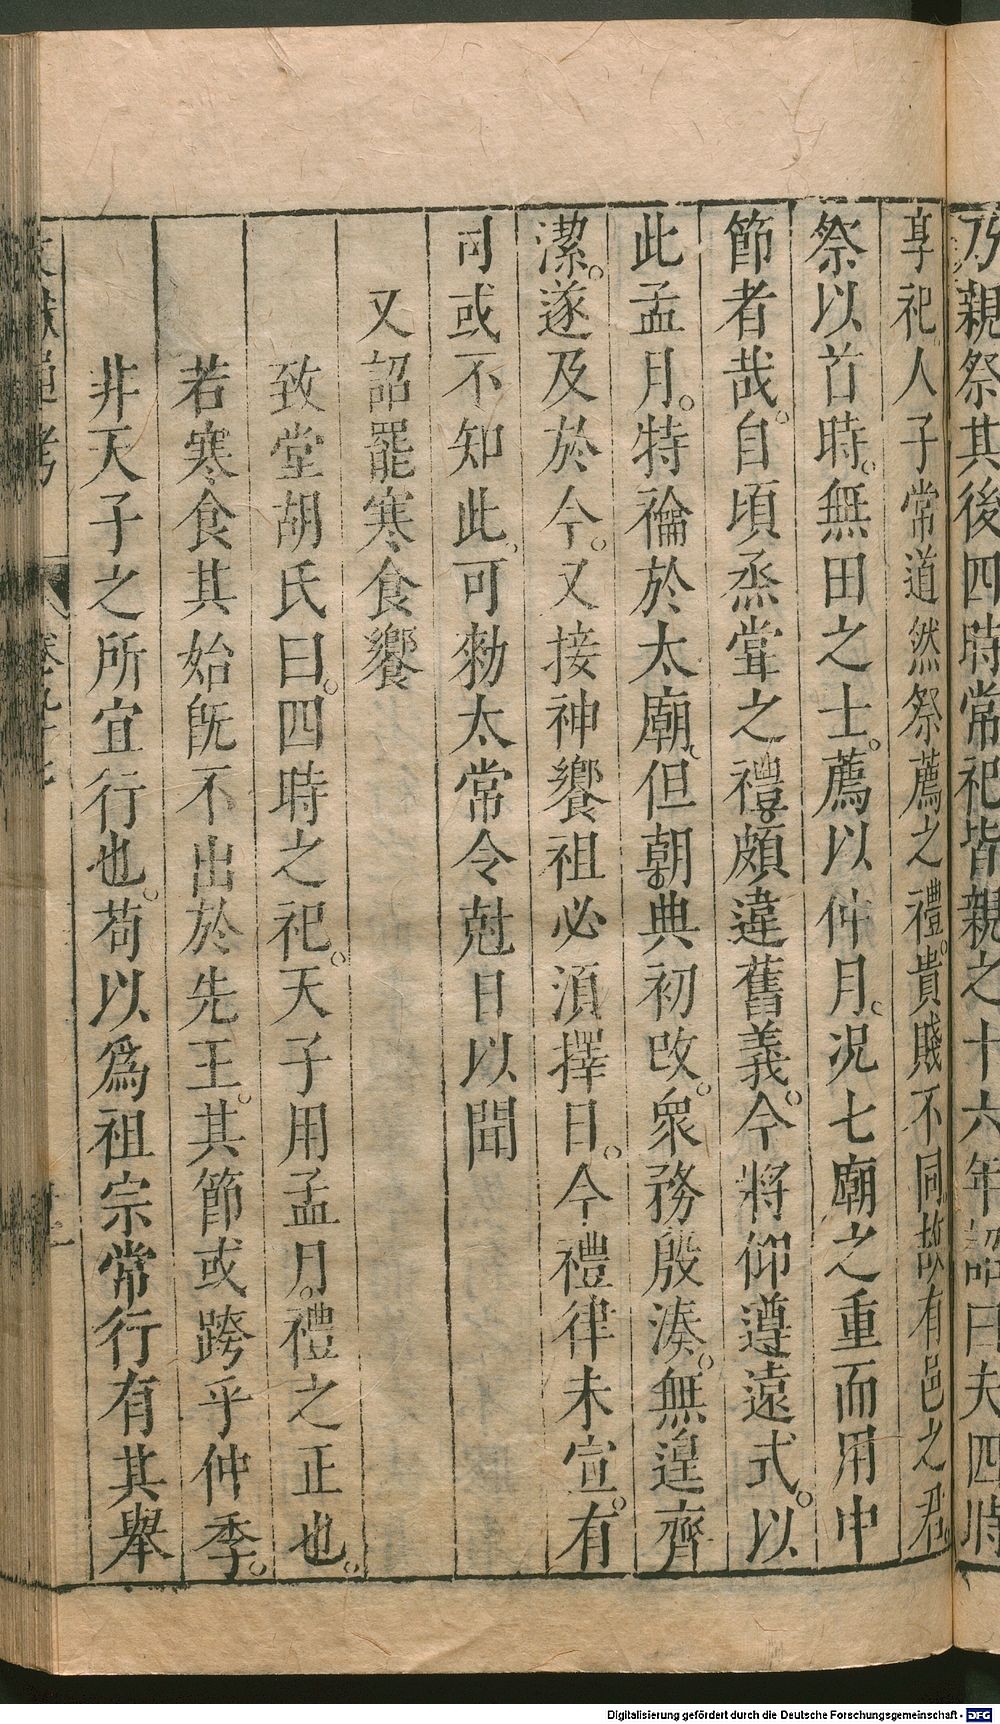 乃親祭其後四時常祀皆親之十六年詔曰夫四時
享祀人子常道然祭薦之禮貴賤不同故有邑之君
祭以首時無田之士薦以仲月況七廟之重而用中
節者哉自頃烝嘗之禮頗違舊義今將仰遵遠式以
此孟月特禴於太廟但朝典初改衆務殷湊無遑齊
潔遂及於今又接神饗祖必須擇日今禮律未宣有
司或不知此可勑太常令尅日以聞
又詔罷寒食饗
致堂胡氏曰四時之祀天子用孟月禮之正也
若寒食其始旣不出於先王其節或跨乎仲季
非天子之所宜行也苟以爲祖宗常行有其舉
Digitalisierung gefördert durch die Deutsche Forschungsgemeinschaft - DFG